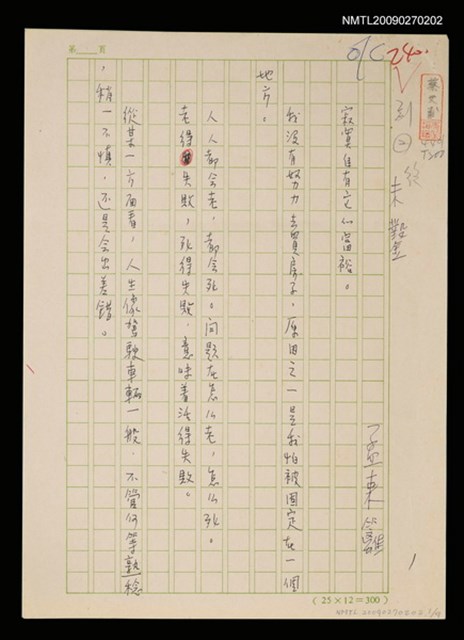 NMTL20090270202
第　頁
OK 240
孟東籬
寂寞自有它的富裕。
我沒有努力去買房子，原因之一是我怕被固定在一個
地方。
人人都會老，都會死。問題在怎么老，怎么死。
老得失敗，死得失敗，意味著活得失敗。
從某一方面看，人生像駕駛車輛一般，不管何等熟稔
，稍一不慎，還是會出差錯。
1
（25×12＝300）